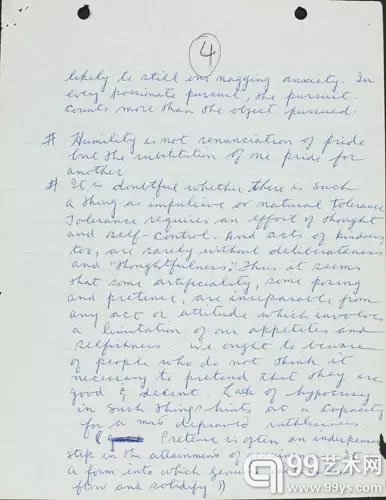 4
likely to still our nagging anxiety. In
every passionate pursuit, the pursuit
counts more than the object pursued.
# Humility is not renunciation of pride
but the substitution of one pride for
another.
# It is doubtful whether there is such
a thing as impulsive or natural tolerance
Tolerance requires an effort of thought
and self-control. And acts of kindness,
too, are rarely without deliberateness
and "thoughtfulness." Thus it seems
that some artificiality, some posing
and pretence, are inseparable from
any act or attitude which involves
a limitation of our appetites and
selfishness. We ought to beware
of people who do not think it
necessary to pretend that they are
good & decent. Lack of hypocrisy
in such things hints at a capacity
for a most depraved ruthlessness.
( Pretence is often an indispensable
step in the attainment of
a form into which genuine
flow and solidify )
99艺术网
www.99ys.com